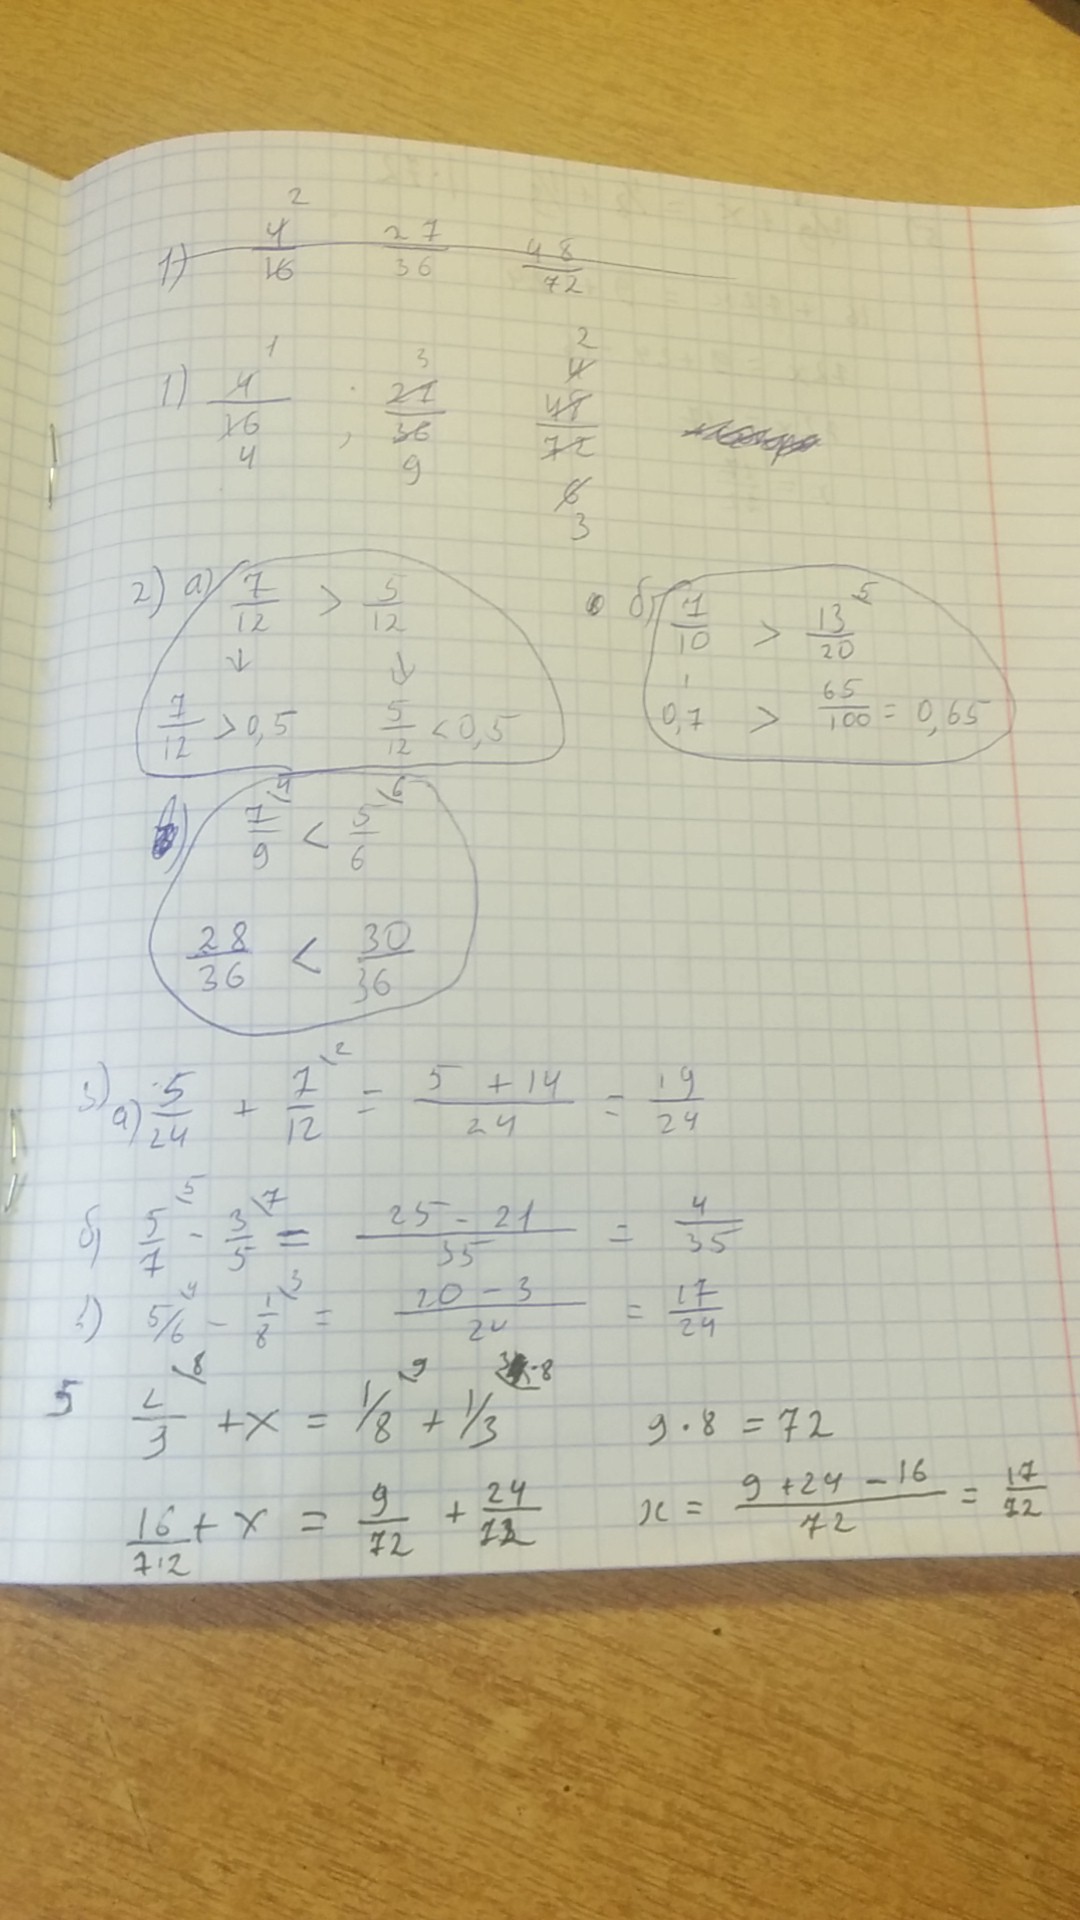 1) 4/16 2 27/36 48/72
1) 4/16 1 4 ; 27/36 3 9 48/72 4 2 6 3
2) а) 7/12 > 5/12 б) 7/10 > 13/20 5
↓ ↓
7/12 > 0,5 5/12 < 0,5 0,7 > 65/100 = 0,65
7/9 \4 < 5/6 \6
28/36 < 30/36
3) а) 5/24 + 7/12 \2 = (5 + 14)/24 = 19/24
б) 5/7 \5 - 3/5 \7 = (25 - 21)/35 = 4/35
5/6 4 - 1/8 \3 = (20 - 3)/24 = 17/24
5 2/9 \8 + x = 1/8 \9 + 1/3 3·8 9 · 8 = 72
16/72 + x = 9/72 + 24/72 x = (9 + 24 - 16)/72 = 17/72